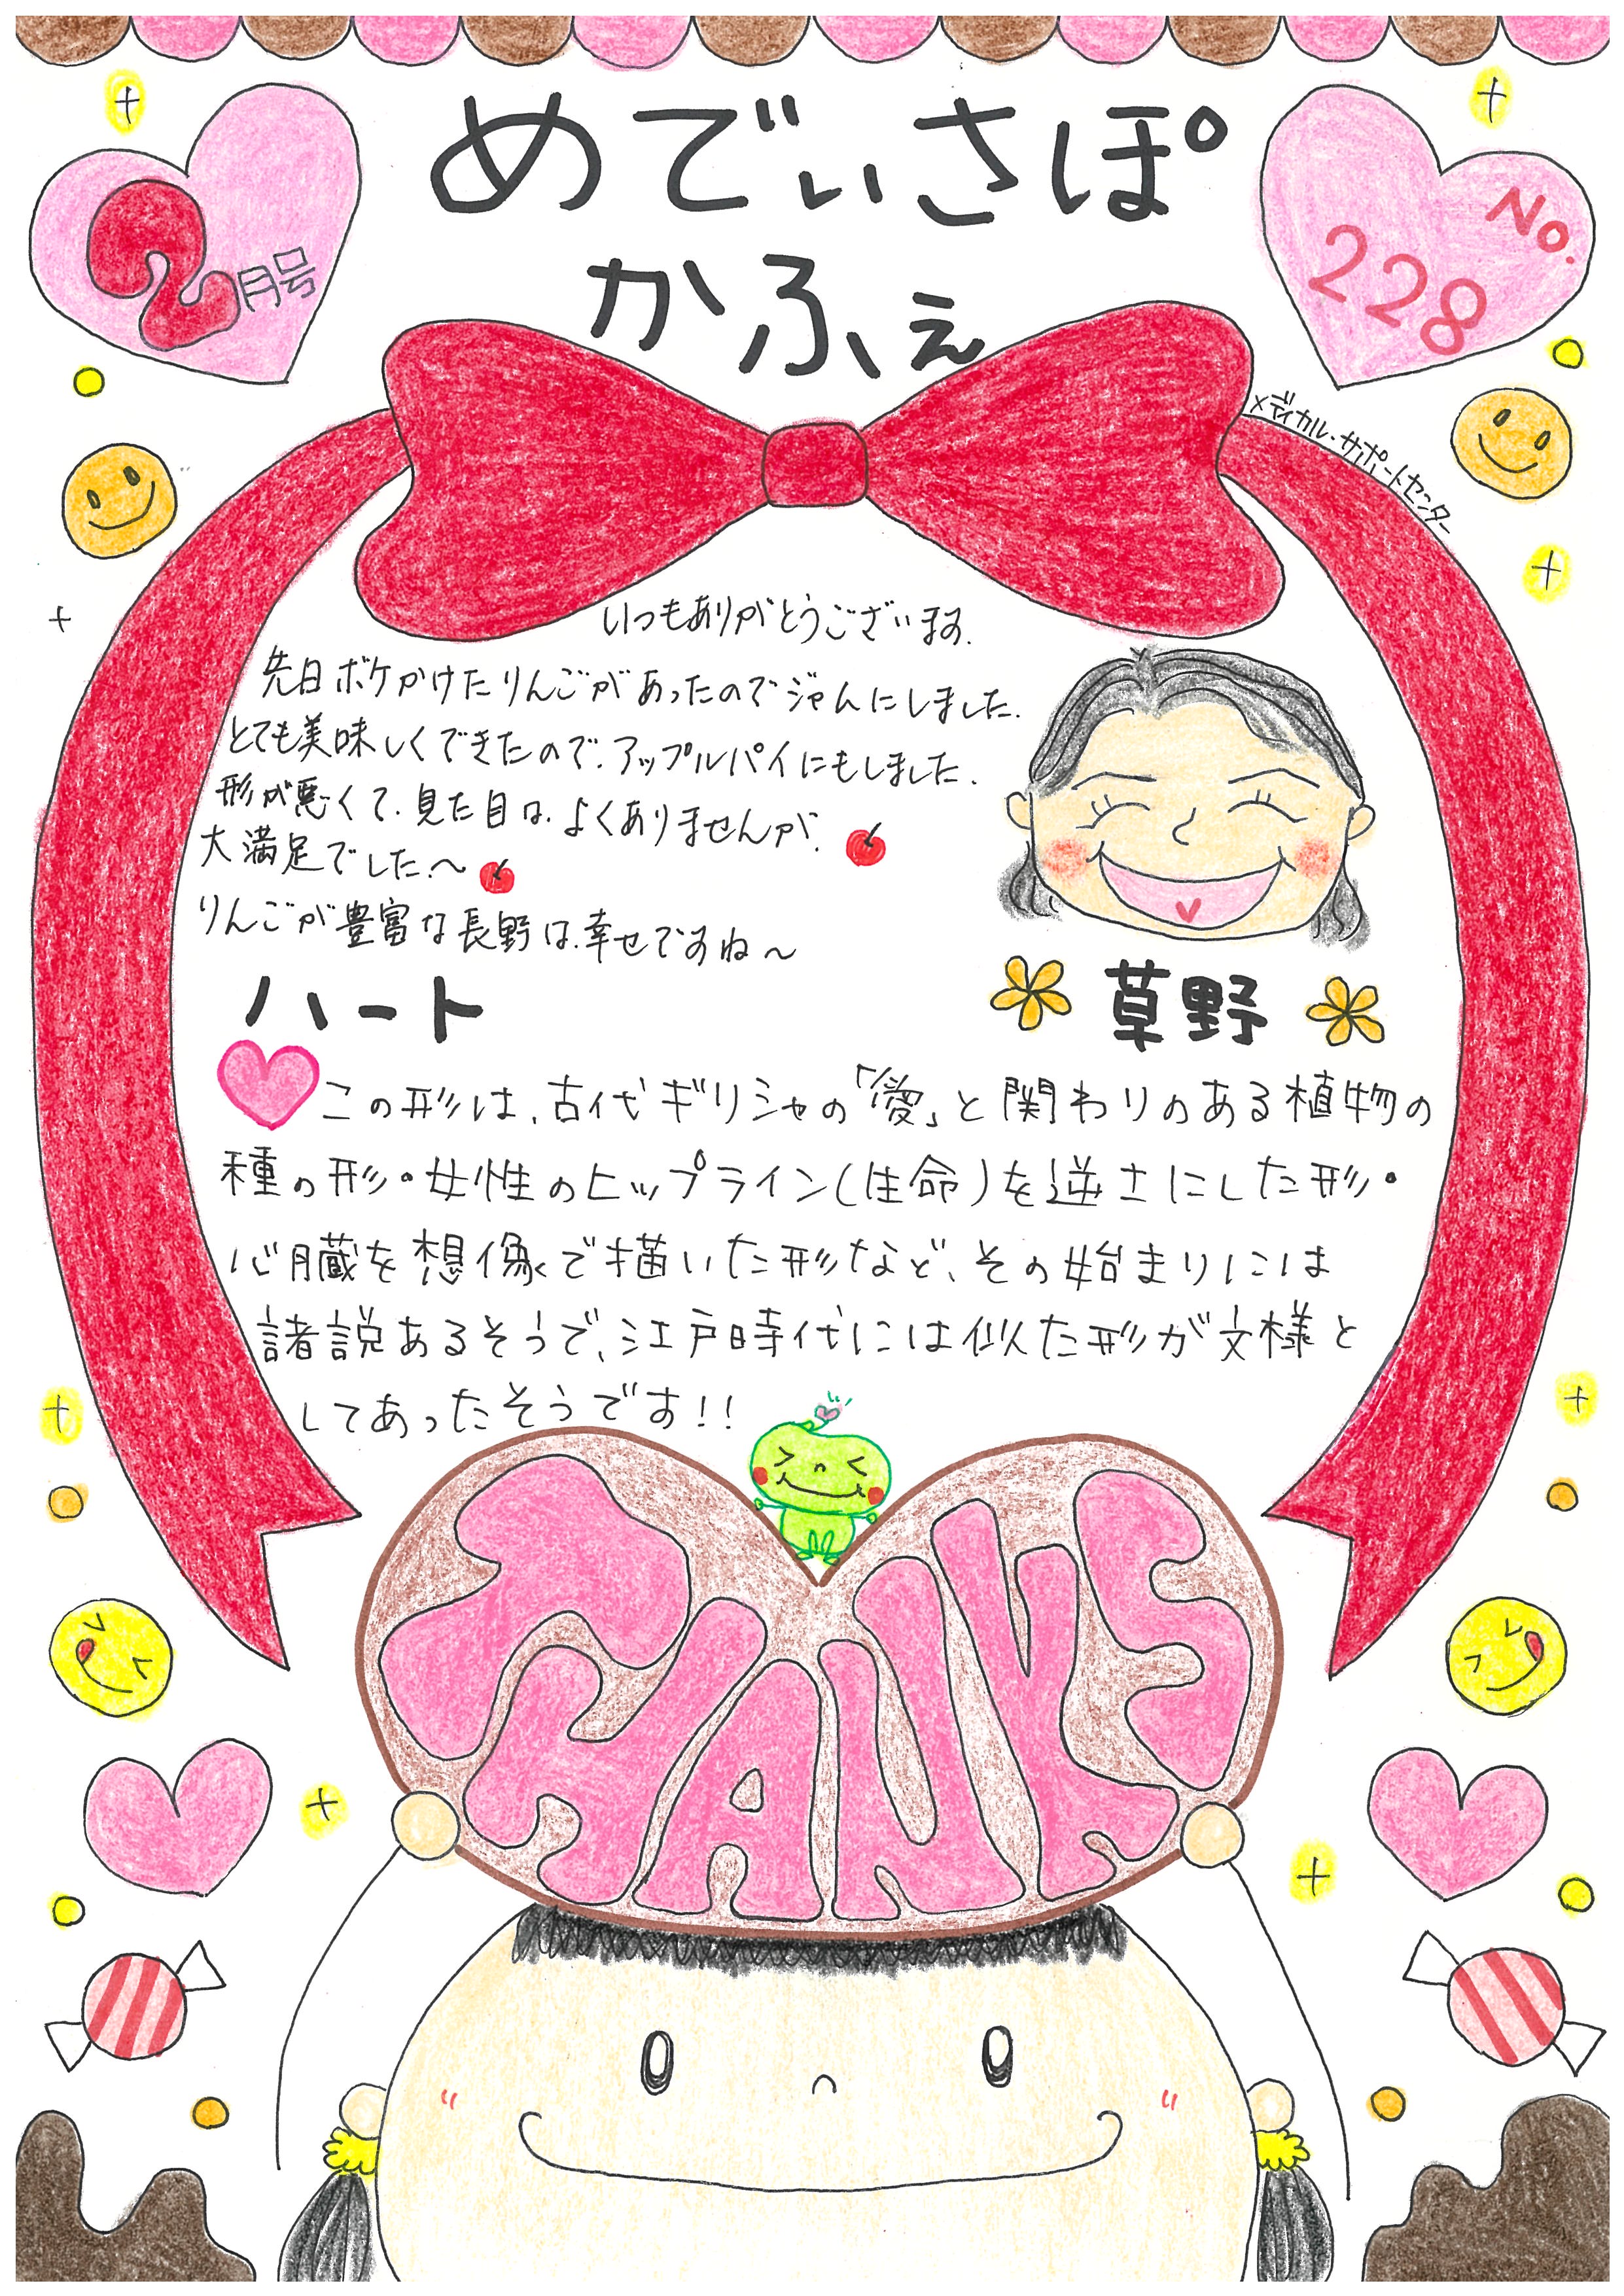 めでぃさぽ
かふぇ
2月号
No.
228
メディカル・サポートセンター
いつもありがとうございます.
先日ボケかけたりんごがあったのでジャムにしました.
とても美味しくできたので、アップルパイにもしました.
形が悪くて、見た目は、よくありませんが、
大満足でした.〜
りんごが豊富な長野は、幸せですね〜
草野
ハート
この形は、古代ギリシャの「愛」と関わりのある植物の
種の形・女性のヒップライン(生命)を逆さにした形・
心臓を想像で描いた形など、その始まりには
諸説あるそうで、江戸時代には似た形が文様と
してあったそうです!!
THANKS